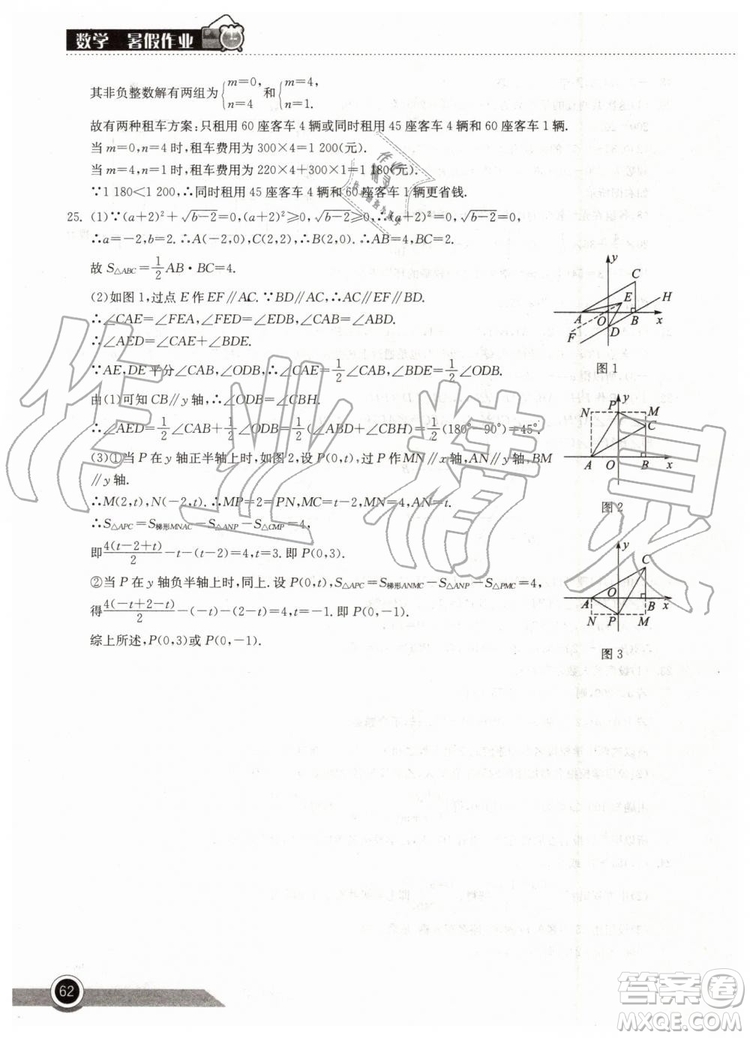 数学 暑假作业
其非负整数解有两组为{m=0, n=4 和{m=4, n=1.
故有两种租车方案:只租用 60 座客车 4 辆或同时租用 45 座客车 4 辆和 60 座客车 1 辆.
当 m=0,n=4 时,租车费用为 300×4=1 200(元).
当 m=4,n=1 时,租车费用为 220×4+300×1=1 180(元).
∵1 180<1 200,∴同时租用 45 座客车 4 辆和 60 座客车 1 辆更省钱.
25. (1)∵(a+2)²+√(b-2)=0,(a+2)²≥0,√(b-2)≥0,∴(a+2)²=0,√(b-2)=0.
∴a=-2,b=2. ∴A(-2,0),C(2,2),∴B(2,0). ∴AB=4,BC=2.
故 S△ABC=1/2 AB·BC=4.
(2)如图 1,过点 E 作 EF∥AC. ∵BD∥AC,∴BD∥AC∥EF.
∴∠CAE=∠FEA,∠FED=∠EDB,∠CAB=∠ABD.
∴∠AED=∠CAE+∠EDB.
∵AE,DE 平分∠CAB,∠ODB,∴∠CAE=1/2∠CAB,∠EDB=1/2∠ODB.
由(1)可知 CB∥y 轴,∴∠ODB=∠CBH.
∴∠AED=1/2∠CAB+1/2∠ODB=1/2(∠ABD+∠CBH)=1/2(180°-90°)=45°.
(3)①当 P 在 y 轴正半轴上时,如图 2,设 P(0,t),过 P 作 MN∥x 轴,AN∥y 轴,BM
∥y 轴.
∴M(2,t),N(-2,t). ∴MP=2=PN,MC=t-2,AN=t.
∴S△APC=S梯形MNAC-S△ANP-S△CMP=4,
即 4(t-2+t)/2-t-(t-2)=4,t=3. 即 P(0,3).
②当 P 在 y 轴负半轴上时,同上. 设 P(0,t),S△APC=S梯形ANMC-S△ANP-S△PMC=4,
得 4(-t+2-t)/2-(-t)-(2-t)=4,t=-1. 即 P(0,-1).
综上所述,P(0,3)或 P(0,-1).
y
C
E
H
A
O
B
x
F
D
图 1
y
N
P
M
C
A
O
B
x
图 2
y
C
O
A
B
x
N
P
M
图 3
作业精灵
62
答案圈
MXQE.COM